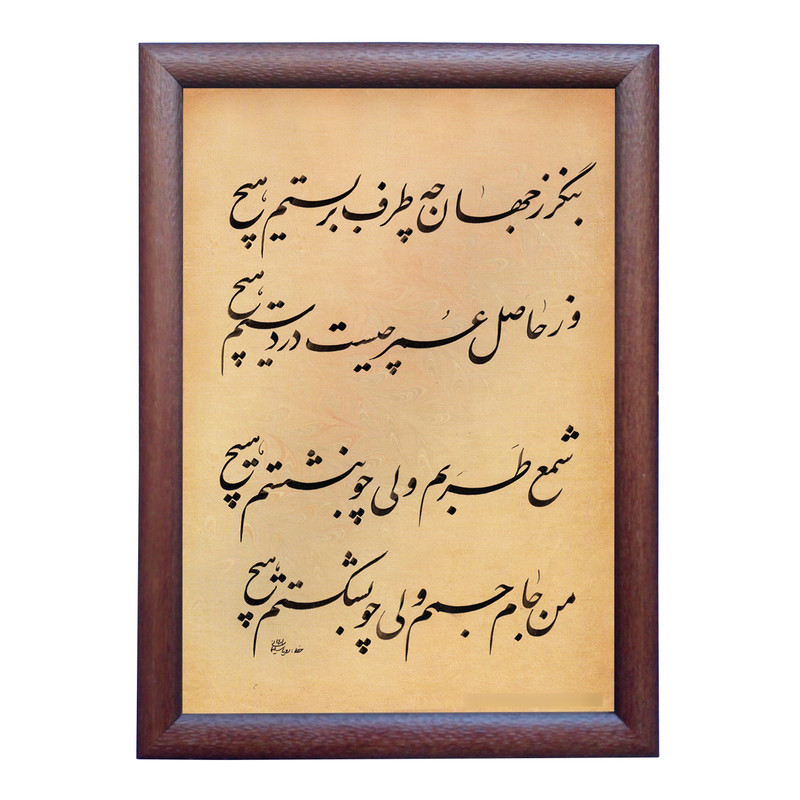 بنگر ز جهان چه طرف بربستیم هیچ
وز حاصل عمر چیست در دستم هیچ
شمع طربم ولی چو بنشستم هیچ
من جام جمم ولی چو بشکستم هیچ
خط: